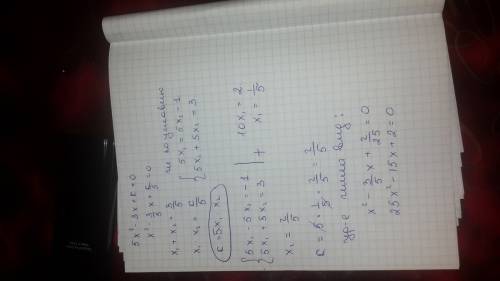 5x² - 3x + c = 0
x² - 3/5 x + c/5 = 0
x₁ + x₂ = 3/5
x₁ · x₂ = c/5
c = 5x₁ x₂
по условию
{ 5x₁ = 5x₂ - 1
{ 5x₁ + 5x₂ = 3
{ 5x₁ - 5x₂ = -1
{ 5x₁ + 5x₂ = 3 | +
10x₁ = 2
x₁ = 1/5
x₂ = 2/5
c = 5 · 1/5 · 2/5 = 2/5
ур-е имеет вид:
x² - 3/5 x + 2/25 = 0
25x² - 15x + 2 = 0